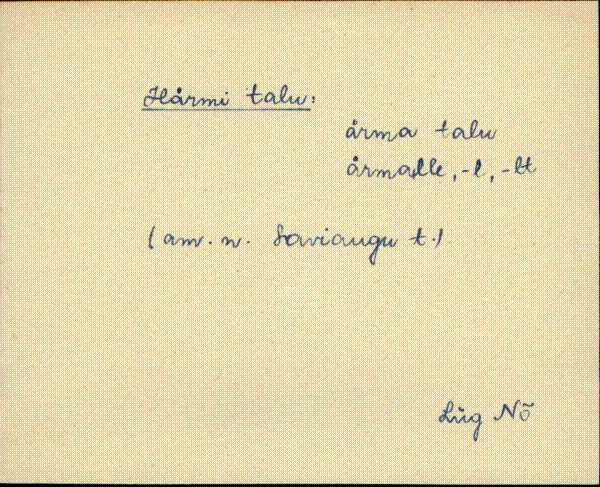 Hårmi talu:
årma talu
årmalle, -l, -lt
(am. n. Saviaugu t.)
Lüg Nõ